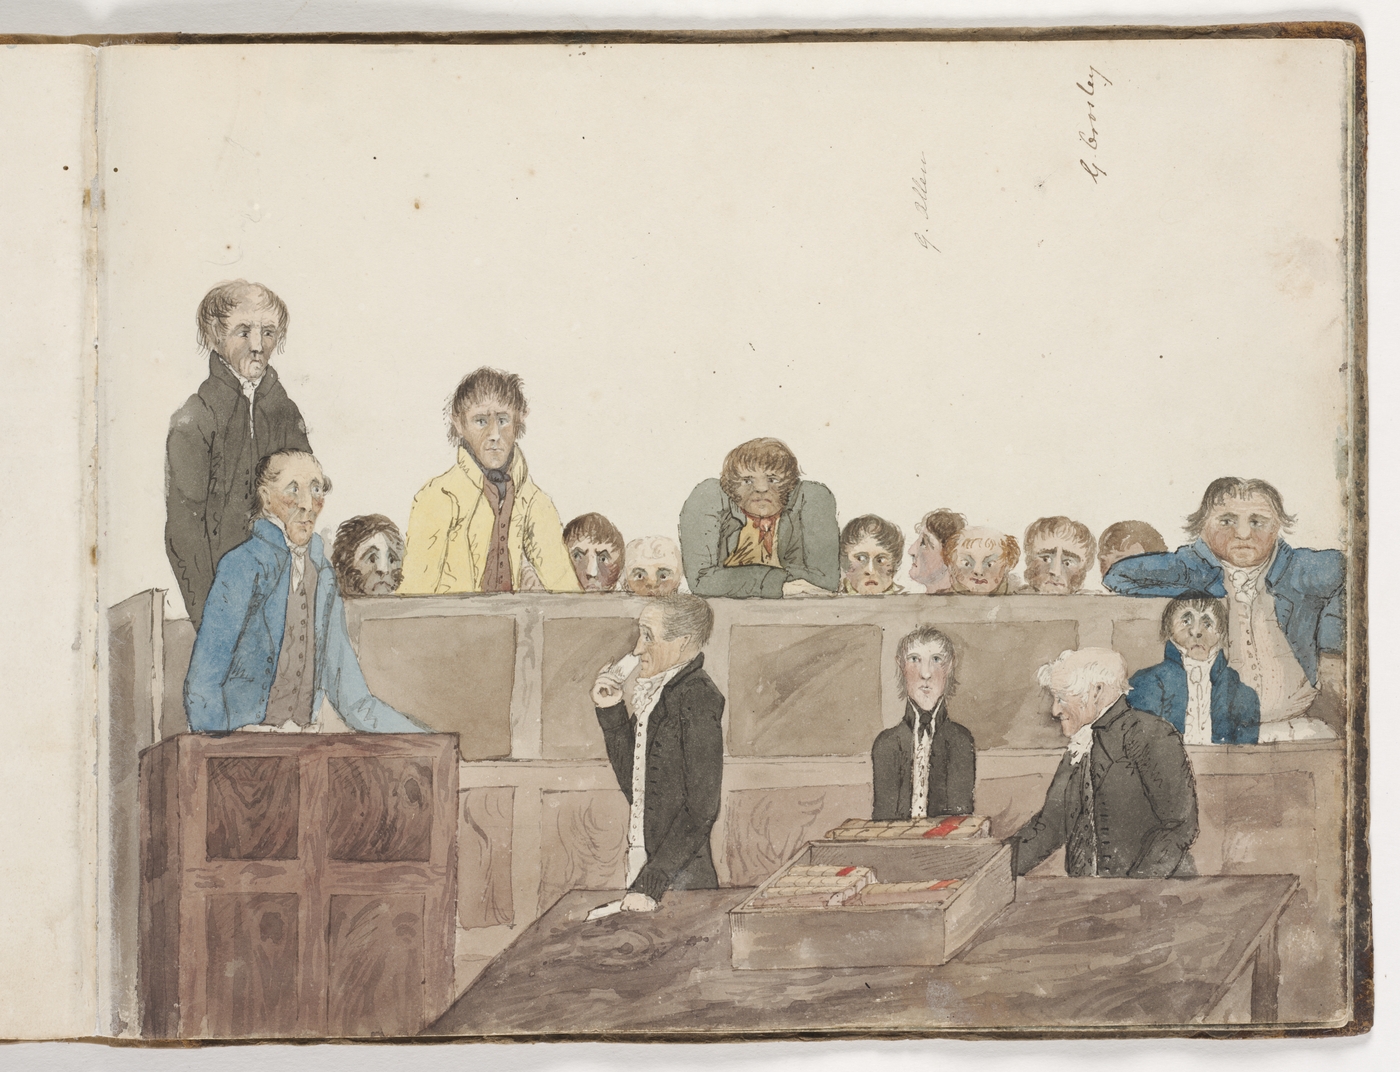 G. Allen
G. Crosley